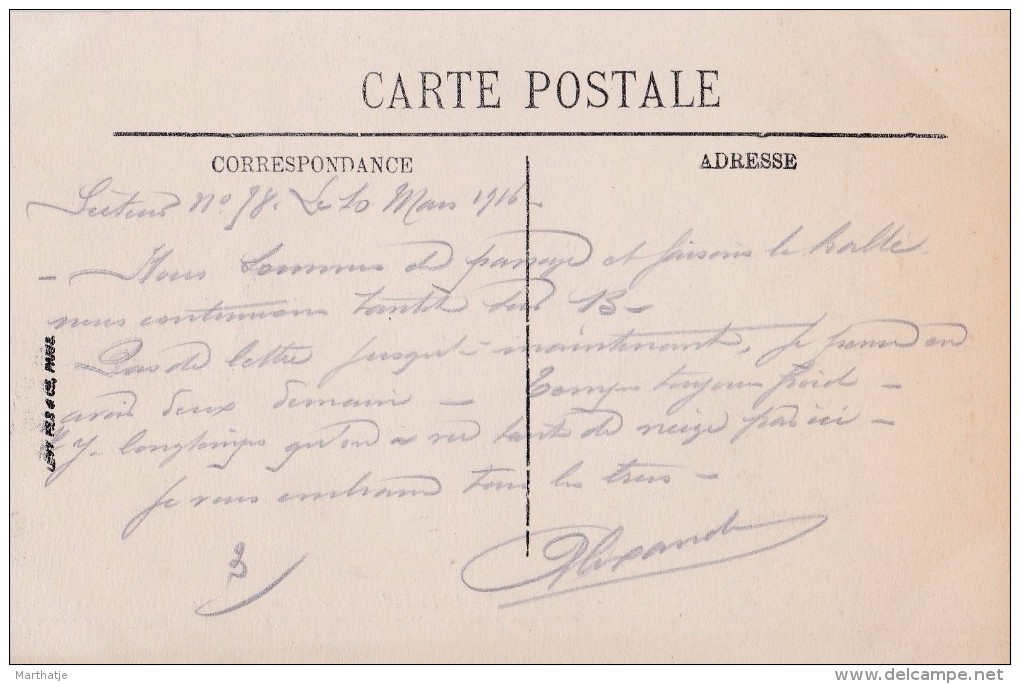 CARTE POSTALE
CORRESPONDANCE
ADRESSE
Secteur No 98. Le 10 Mars 1916 -
- Nous sommes de passage et faisons la halte
nous continuons tantôt sur B -
Pas de lettre jusqu'à maintenant, je pense en
avoir deux demain - Temps toujours froid -
Il y longtemps qu'on a vu tant de neige par ici -
Je vous embrasse tous les trois -
Alexandre
LÉVY FILS & CIE, PARIS.
Marthatje
delcampe.net